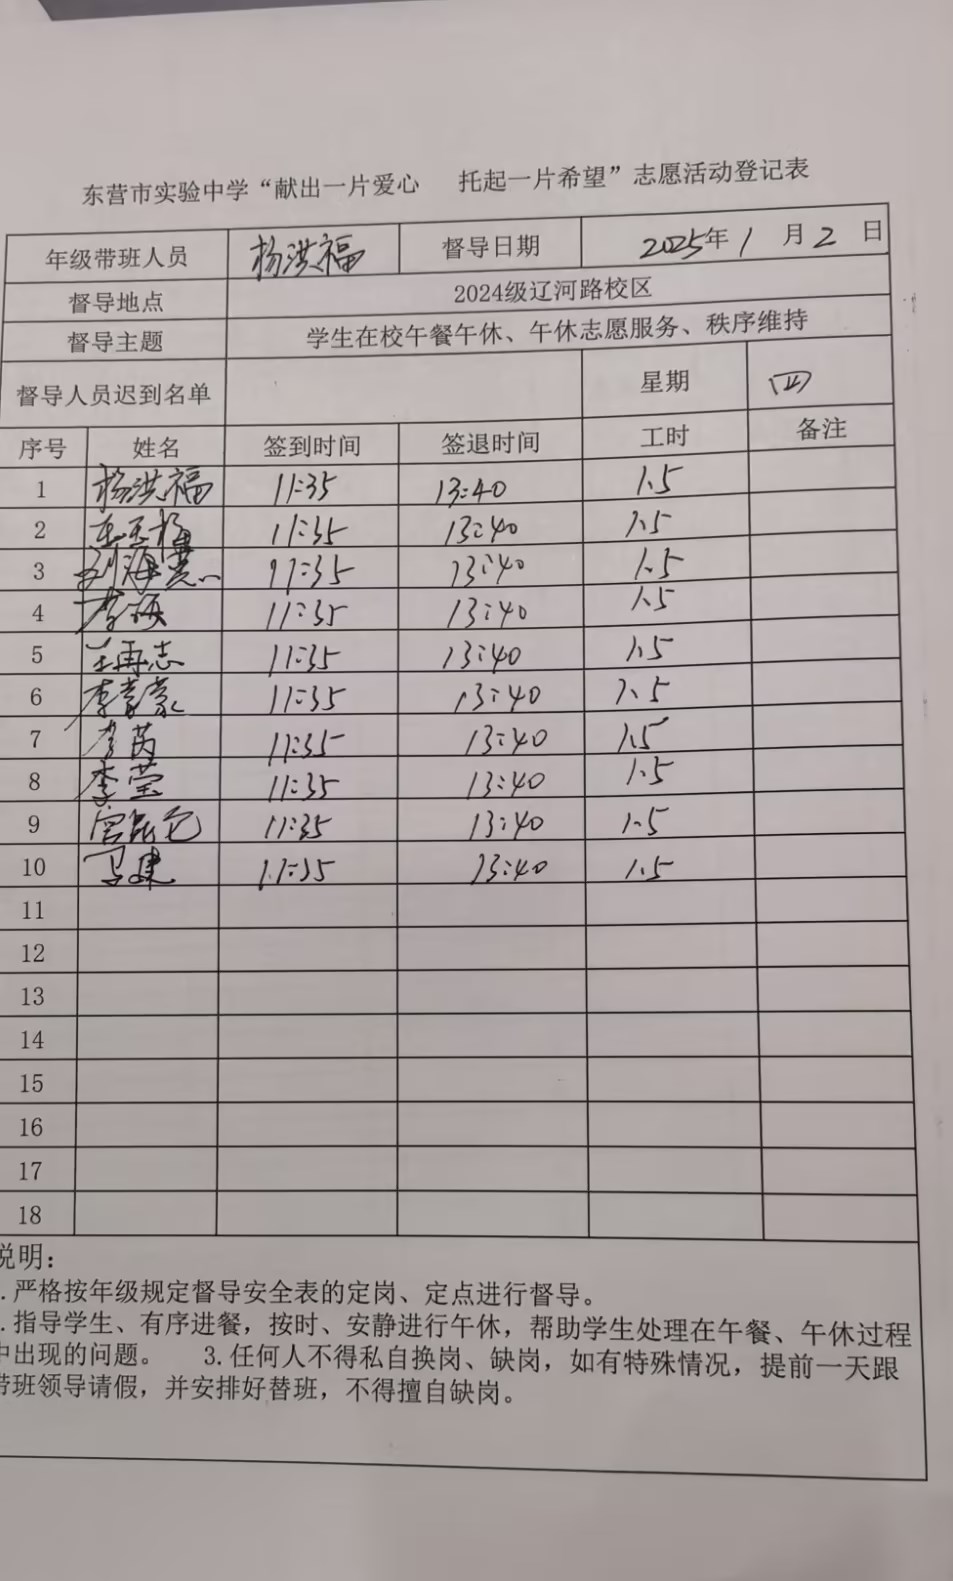 东营市实验中学“献出一片爱心 托起一片希望”志愿活动登记表
年级带班人员 杨洪福 督导日期 2025年1月2日
督导地点 2024级辽河路校区
督导主题 学生在校午餐午休、午休志愿服务、秩序维持
督导人员迟到名单 星期 四
序号 姓名 签到时间 签退时间 工时 备注
1 杨洪福 11:35 13:40 1.5
2 11:35 13:40 1.5
3 刘海 11:35 13:40 1.5
4 李 11:35 13:40 1.5
5 王再志 11:35 13:40 1.5
6 李蒙蒙 11:35 13:40 1.5
7 李芮 11:35 13:40 1.5
8 李莹 11:35 13:40 1.5
9 11:35 13:40 1.5
10 马建 11:35 13:40 1.5
11
12
13
14
15
16
17
18
说明：
.严格按年级规定督导安全表的定岗、定点进行督导。
.指导学生、有序进餐，按时、安静进行午休，帮助学生处理在午餐、午休过程
中出现的问题。 3.任何人不得私自换岗、缺岗，如有特殊情况，提前一天跟
带班领导请假，并安排好替班，不得擅自缺岗。